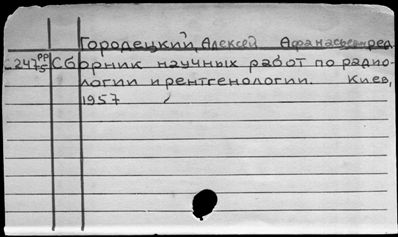 Городецкий, Алексей Афанасьевич ред.
Сборник научных работ по радио-
логии и рентгенологии. Киев,
1957